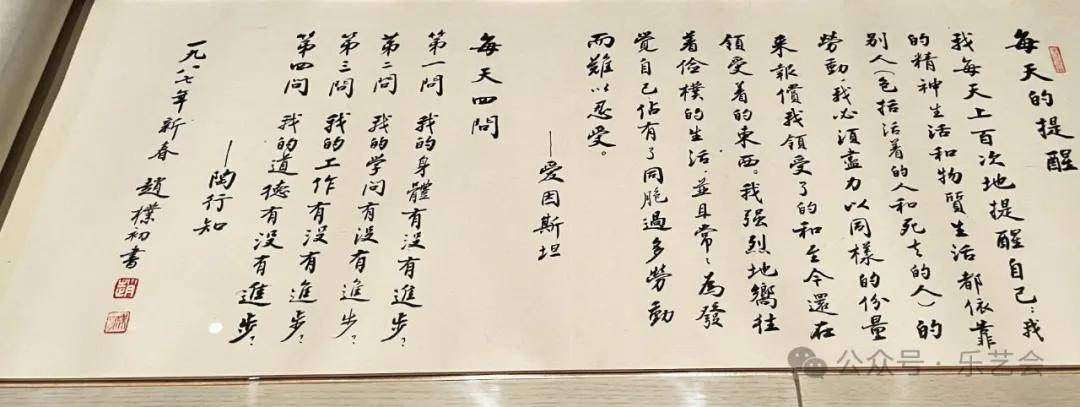 每天的提醒
我每天上百次地提醒自己：我
的精神生活和物質生活都依靠
别人（包括活着的人和死去的人）的
勞動，我必須盡力以同樣的份量
来報償我領受了的和至今還在
領受着的東西。我强烈地嚮往
着儉樸的生活，並且常〻為發
覺自己佔有了同胞過多勞動
而難以忍受。
——爱因斯坦
每天四問
第一問 我的身體有没有進步？
第二問 我的学问有没有進步？
第三問 我的工作有没有進步？
第四問 我的道德有没有進步？
——陶行知
一九八七年新春 趙樸初書
趙
公众号·乐艺会